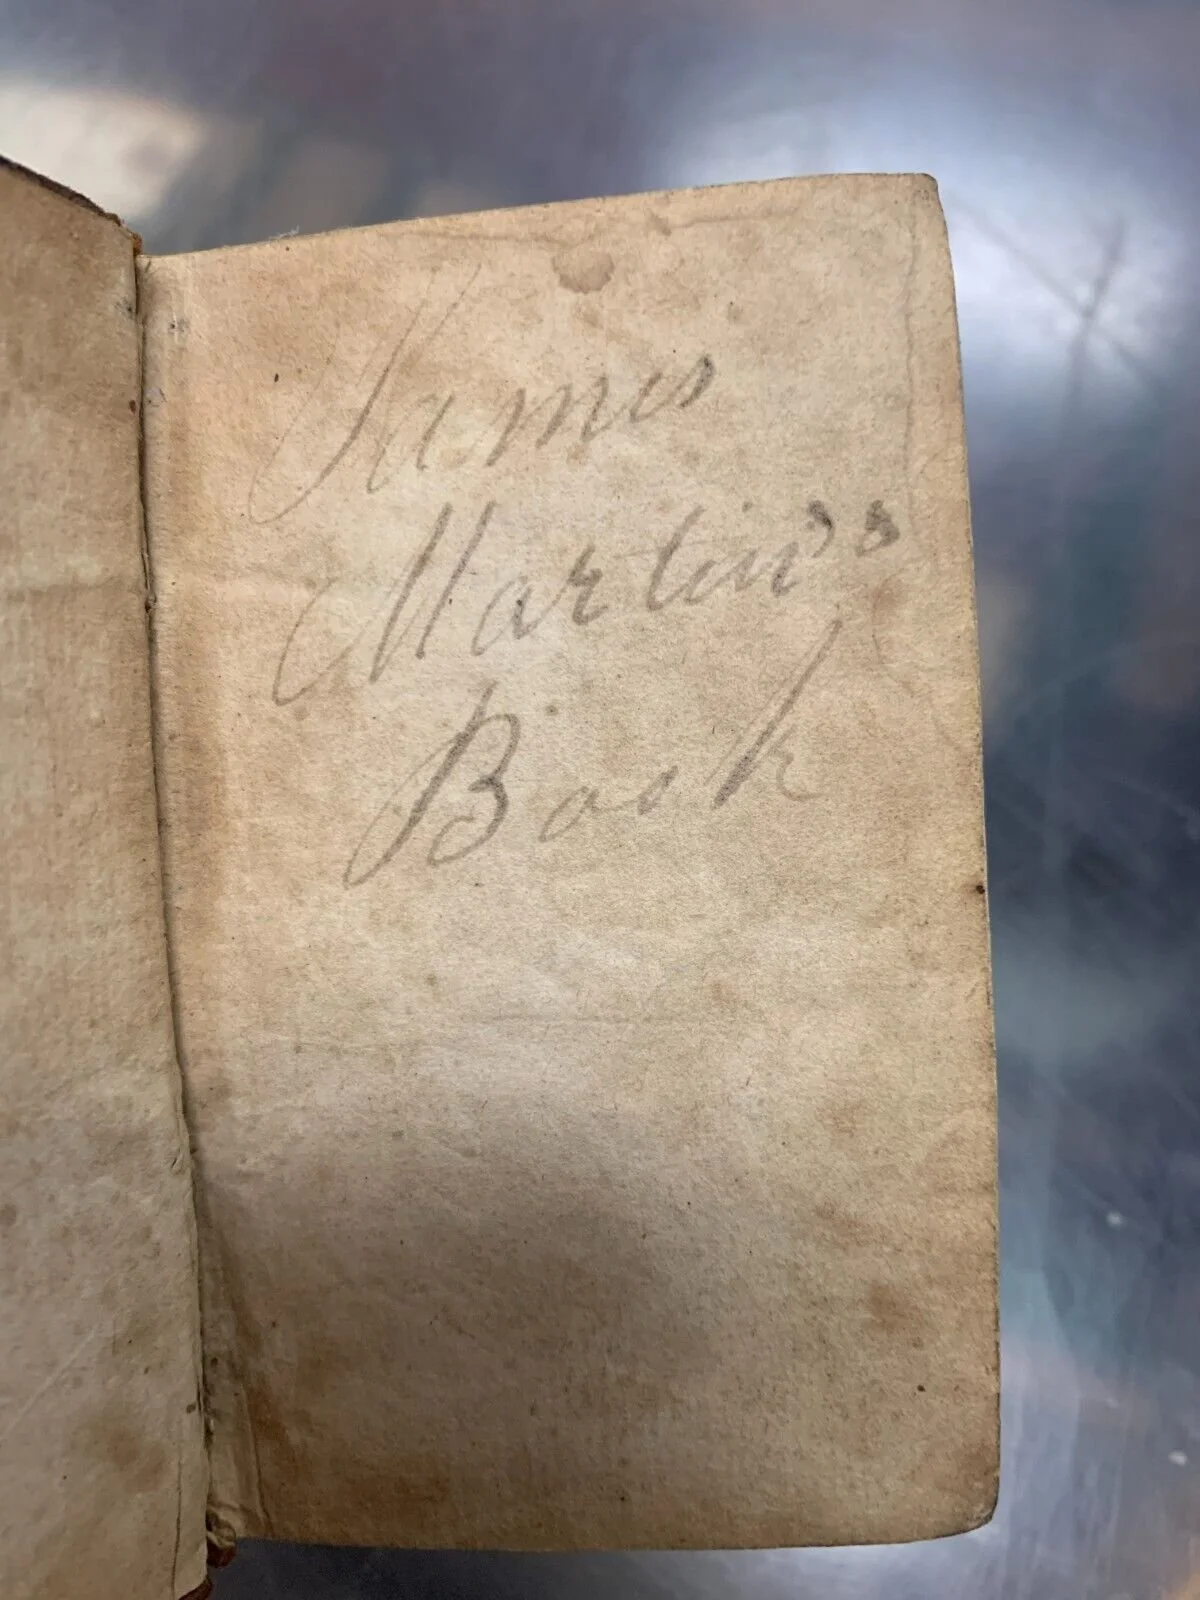 James
Martin's
Book